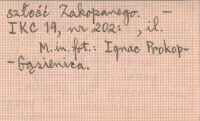 szłość Zakopanego. —
IKC 19, nr 202: , il.
M. in. fot.: Ignac Prokop-
-Gąsienica.